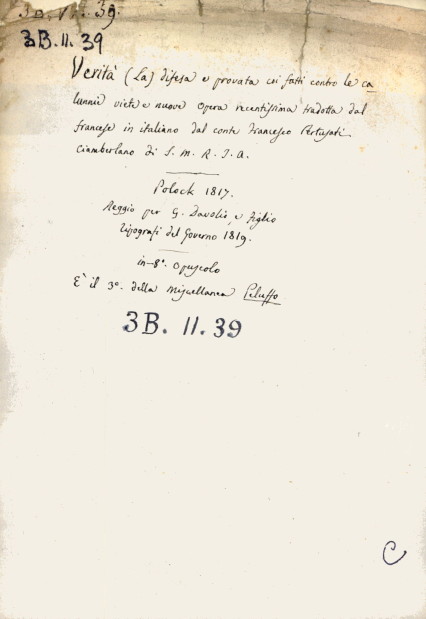 3B.II.39.
3B.II.39
Verità (La) difesa e provata coi fatti contro le ca
lunnie viete e nuove opera recentissima tradotta dal
francese in italiano dal conte Francesco Pertusati
Ciamberlano di S. M. R. I. A.
Polock 1817.
Reggio per G. Davolio, e figlio
Tipografi del Governo 1819.
in-8º. opuscolo
È il 3º. della Miscellanea Peluffo
3B. II. 39
C